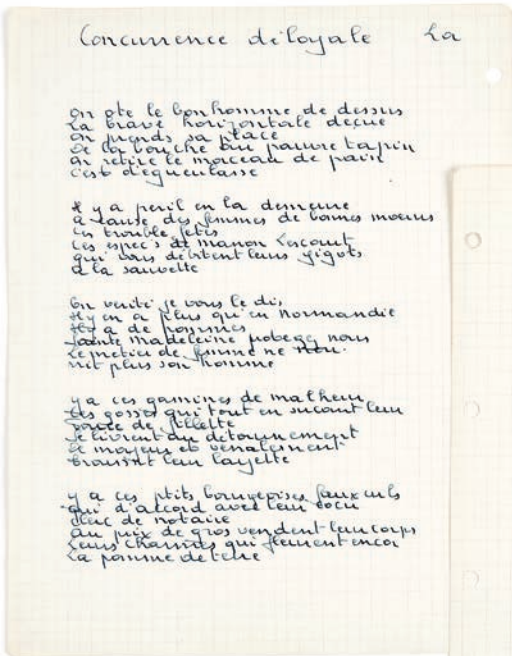 Concurrence déloyale La
On ote le bonhomme de dessus
La brave horizontale déçue
on prends sa place
De la bouche du pauvre tapin
on retire le morceau de pain
c'est dégueulasse
Il y a peril en la demeure
a cause des femmes de bonnes moeurs
ces trouble fetes
ces espec's de manon Lescaut
qui vous débitent leurs gigots
a la sauvette
En verité je vous le dis
Il y en a plus qu'en Normandie
Il y a de pommes
Sainte Madeleine protegez nous
Le metier de femme ne
rit plus son homme
y a ces gamines de malheur
ces gosses qui tout en sucant leur
pouce de fillette
se livrent au détournement
de majeurs et vénalement
troussent leur layette
y a ces ptits bourgeoises faux culs
qui d'accord avec leur cocu
clerc de notaire
au prix de gros vendent leur corps
Leurs charmes qui fleurent encor
La pomme de terre